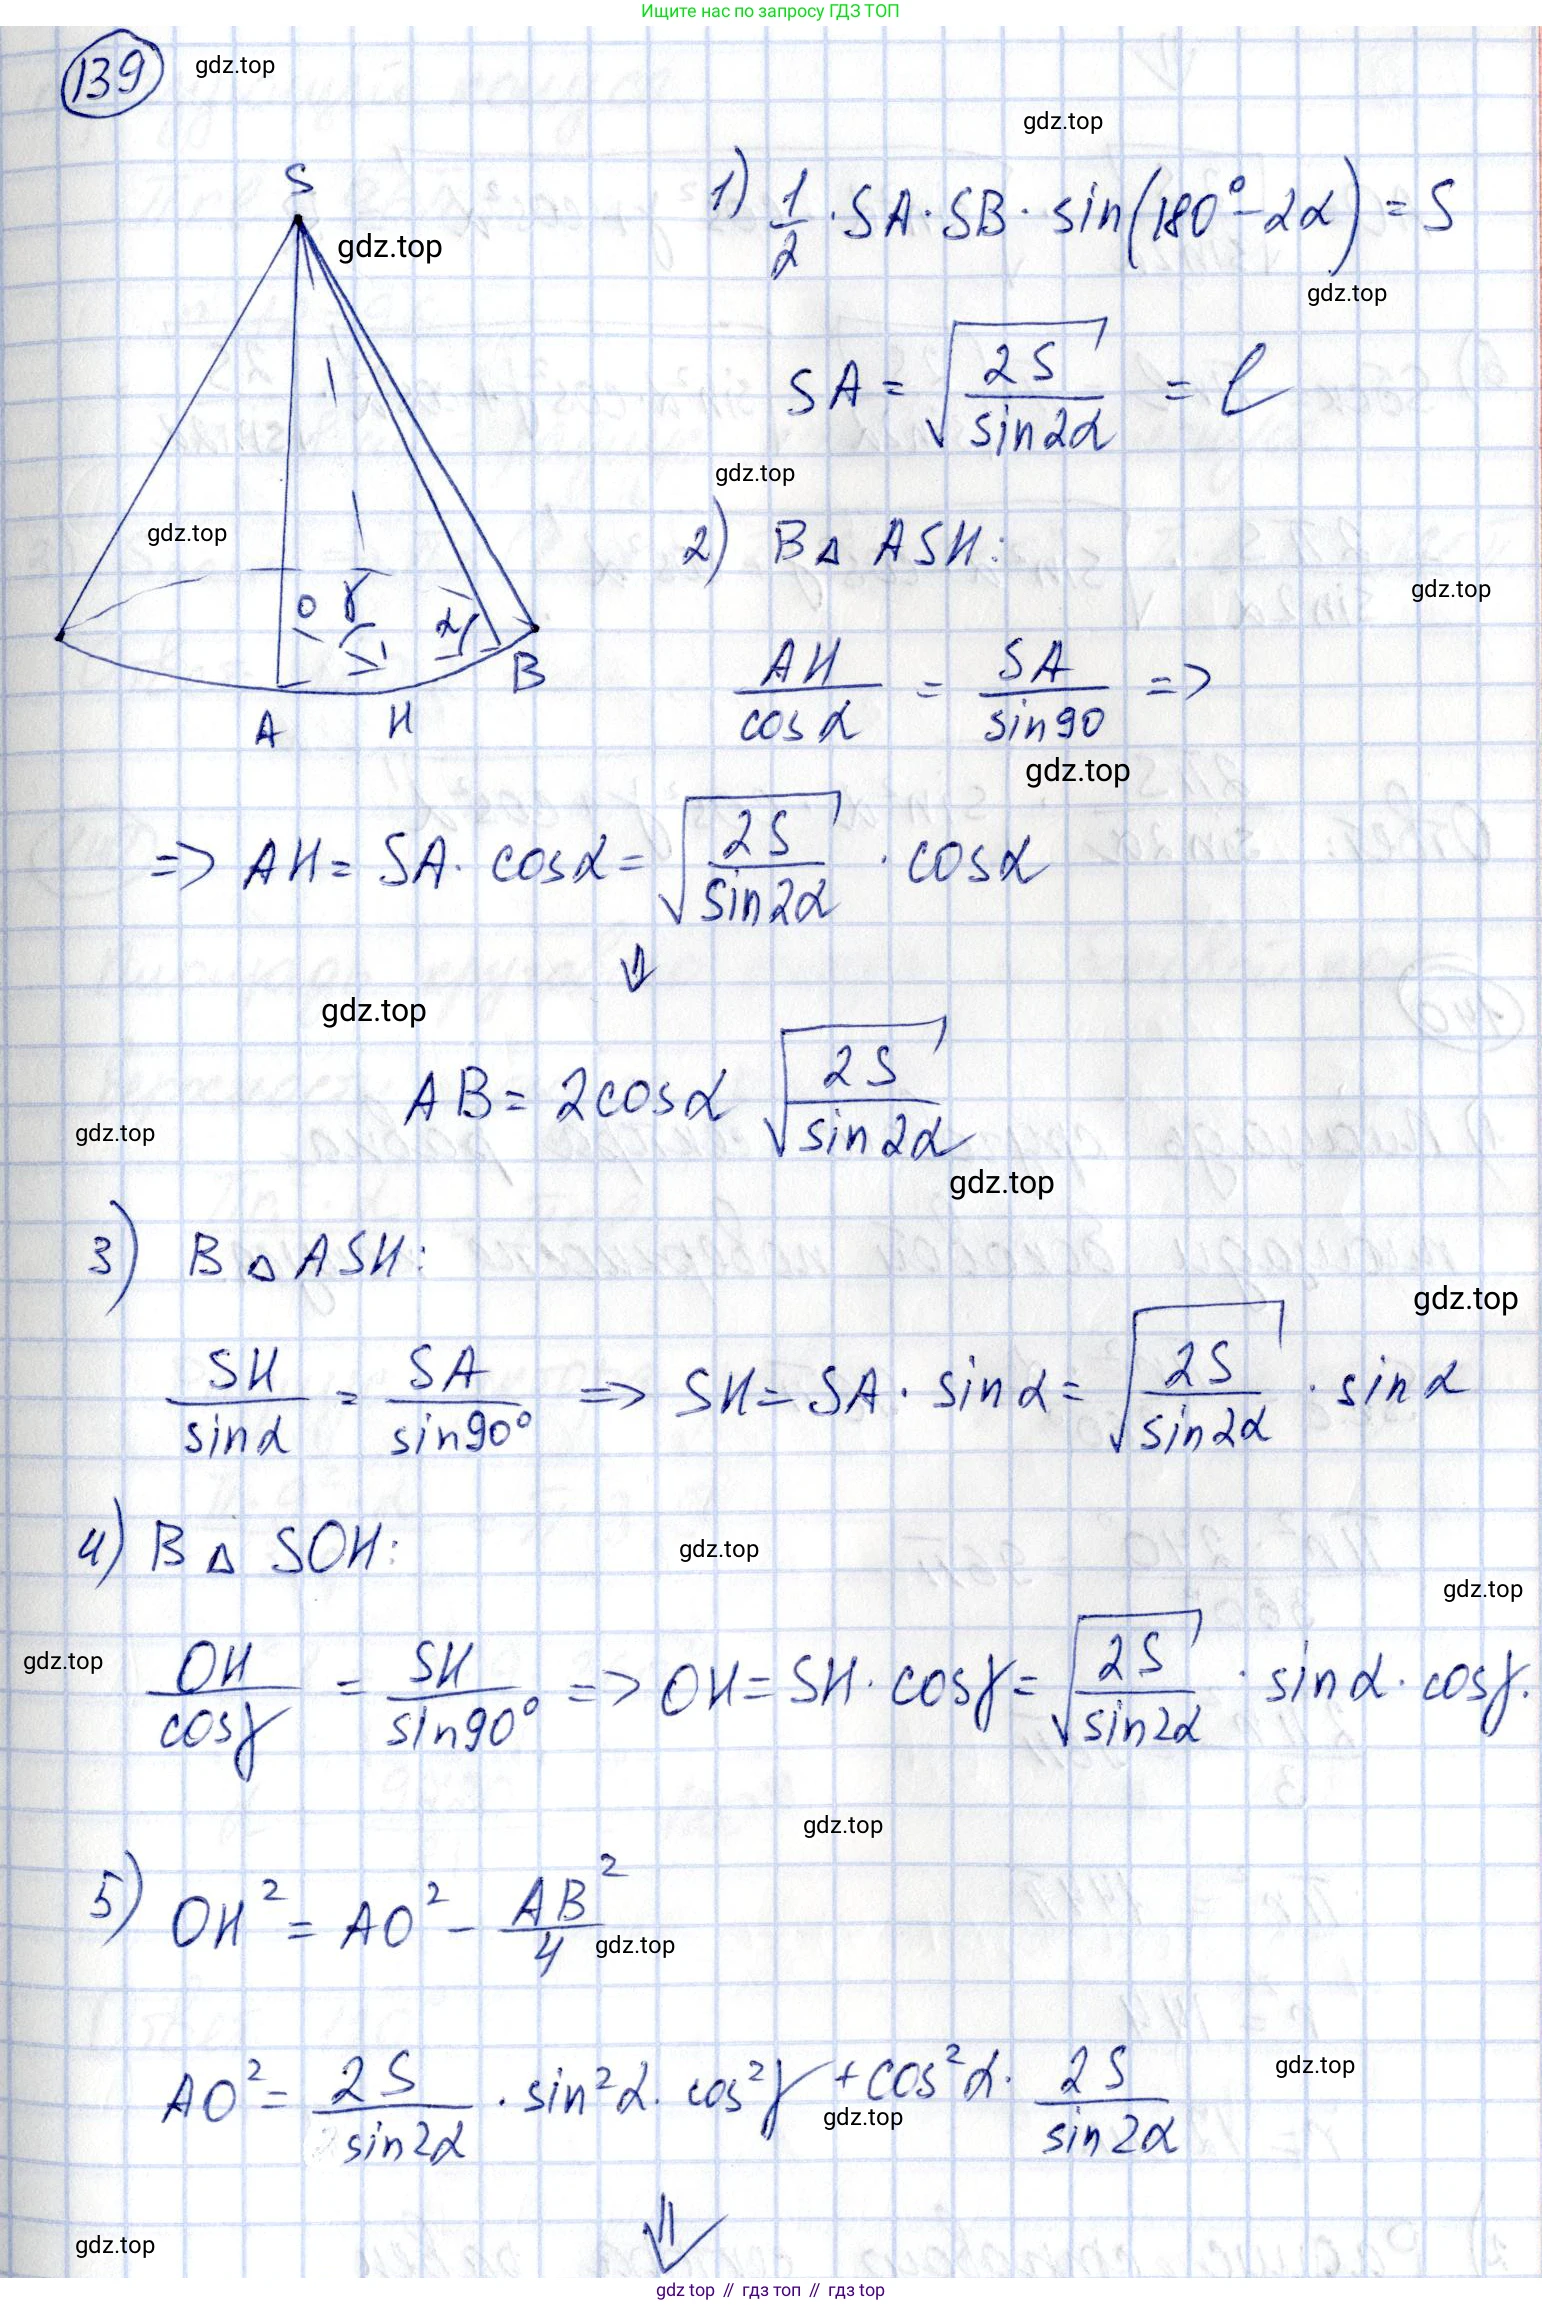 Ищите нас по запросу ГДЗ ТОП
139
gdz.top
gdz.top
S
gdz.top
1) 1/2 · SA · SB · sin(180° - 2α) = S
gdz.top
SA = √(2S / sin2α) = l
gdz.top
gdz.top
2) В △ ASH:
gdz.top
O γ α
B
A H
AH / cos α = SA / sin90 =>
gdz.top
=> AH = SA · cosα = √(2S / sin2α) · cosα
⇓
gdz.top
AB = 2cosα √(2S / sin2α)
gdz.top
gdz.top
3) В △ ASH:
gdz.top
SH / sinα = SA / sin90° => SH = SA · sinα = √(2S / sin2α) · sinα
4) В △ SOH:
gdz.top
gdz.top
gdz.top
OH / cosγ = SH / sin90° => OH = SH · cosγ = √(2S / sin2α) · sinα · cosγ.
gdz.top
5) OH² = AO² - AB² / 4
gdz.top
AO² = 2S / sin2α · sin²α · cos²γ + cos²α · 2S / sin2α
gdz.top
gdz.top
⇓
gdz.top
gdz top // гдз топ // gdz top